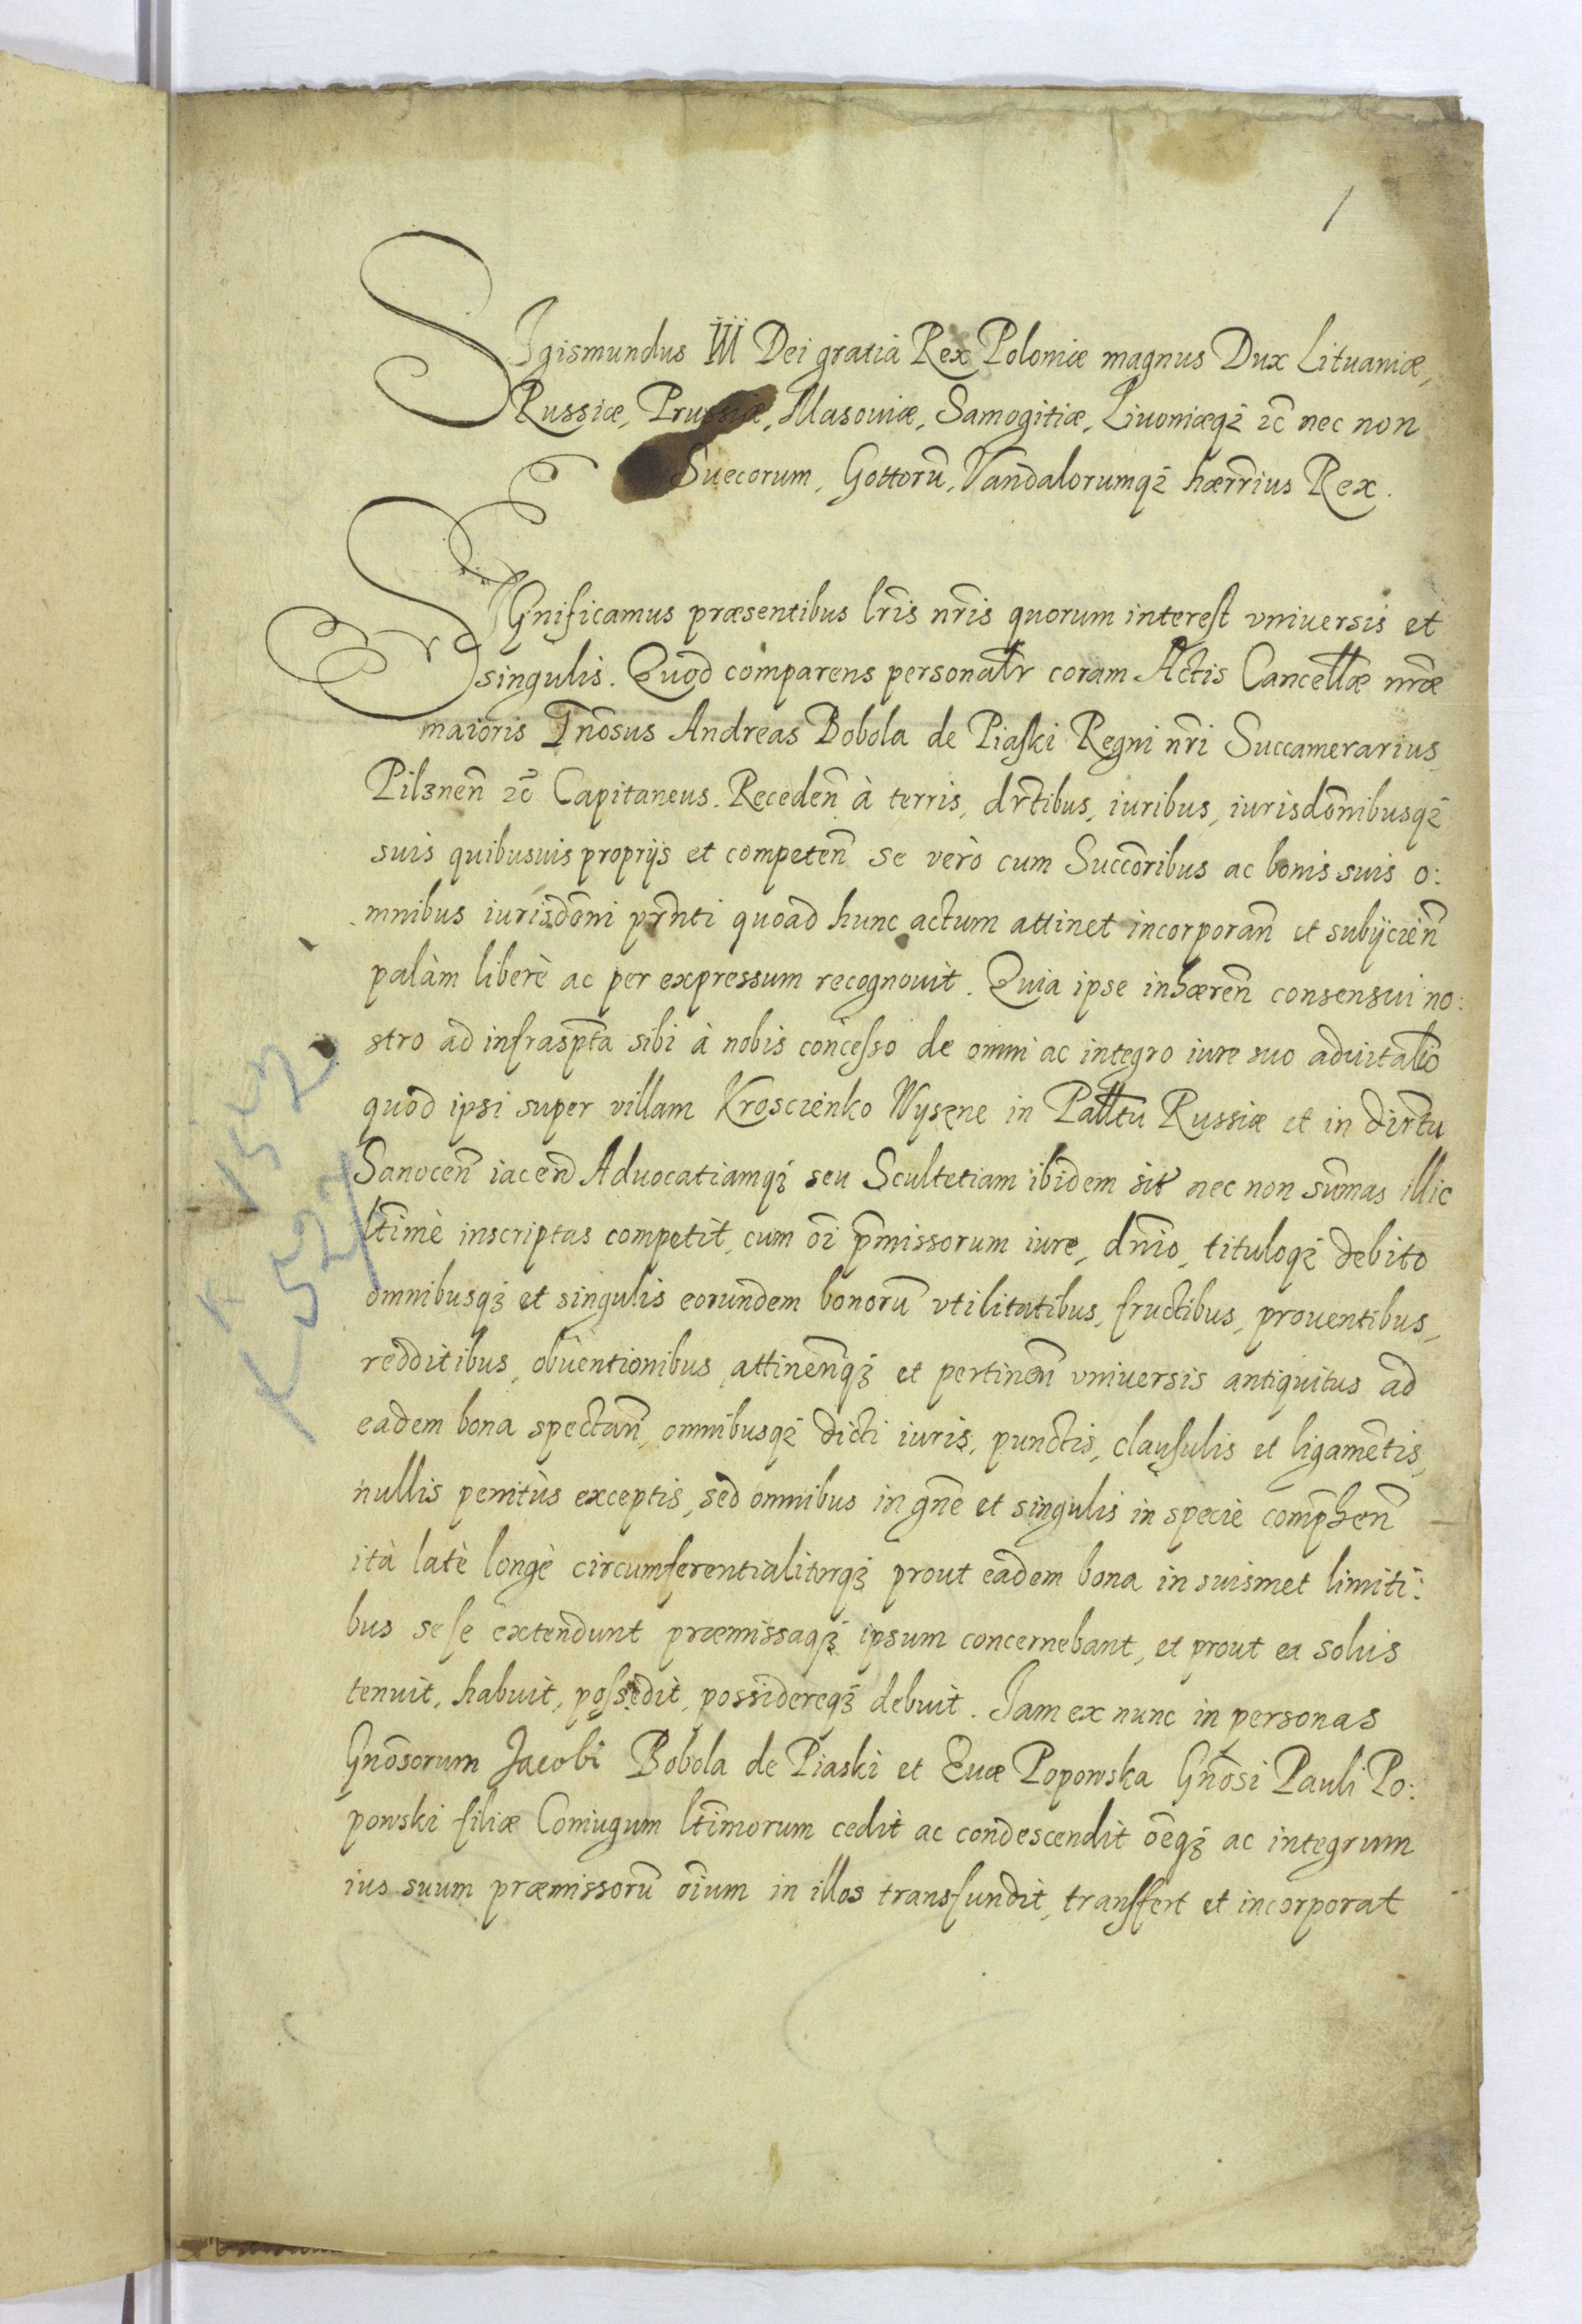 1
SIgismundus III Dei gratia Rex Poloniæ magnus Dux Lituaniæ,
Russiæ, Prussiæ, Masouiæ, Samogitiæ, Liuoniæqȝ ꝛc̃ nec non
Suecorum, Gottorũ, Vandalorumqȝ hærr̃ius Rex.
SIGnificamus præsentibus lr̃is nr̃is quorum interest vniuersis et
singulis. Quod comparens personalr̃ coram Actis Cancellæ nr̃æ
maioris Gñosus Andreas Bobola de Piaski Regni nr̃i Succamerarius,
Pilznen̄ ꝛc̃ Capitaneus. Receden̄ à terris, dr̃ctibus, iuribus, iurisdõnibusqȝ
suis quibusuis proprijs et competen̄ se verò cum Succõribus ac bonis suis o:
mnibus iurisdõni pr̃nti quoad hunc actum attinet incorporan̄ et subijcien̄
palàm liberè ac per expressum recognouit. Quia ipse inhæren̄ consensui no:
stro ad infrasp̃ta sibi à nobis concesso de omni ac integro iure suo aduitalĩo
quod ipsi super villam Kroscienko Wyszne in Pallt̃u Russiæ et in dir̃ctu
Sanocen̄ iacen̄ Aduocatiamqȝ seu Scultetiam ibidem sit̃ nec non sum̃as illic
lt̃imè inscriptas competit, cum õi p̃missorum iure, dn̄io, tituloqȝ debito
omnibusqȝ et singulis eorundem bonorũ vtilitatibus, fructibus, prouentibus,
redditibus, obuentionibus attinen̄qȝ et pertinen̄ vniuersis antiquitus ad
eadem bona spectan̄, omnibusqȝ dicti iuris, punctis, clausulis et ligamẽtis,
nullis penitùs exceptis, sed omnibus in gñe et singulis in specie comp̃hen̄
ità latè longè circumferentialiterqȝ prout eadem bona in suismet limiti:
bus sese extendunt præmissaqȝ ipsum concernebant, et prout ea solus
tenuit, habuit, possedit, possidereqȝ debuit. Jam ex nunc in personas
Gñosorum Jacobi Bobola de Piaski et Euæ Popowska Gñosi Pauli Po:
powski filiæ Coniugum lt̃imorum cedit ac condescendit õeqȝ ac integrum
ius suum præmissorũ õium in illos transfundit, transfert et incorporat
K 527